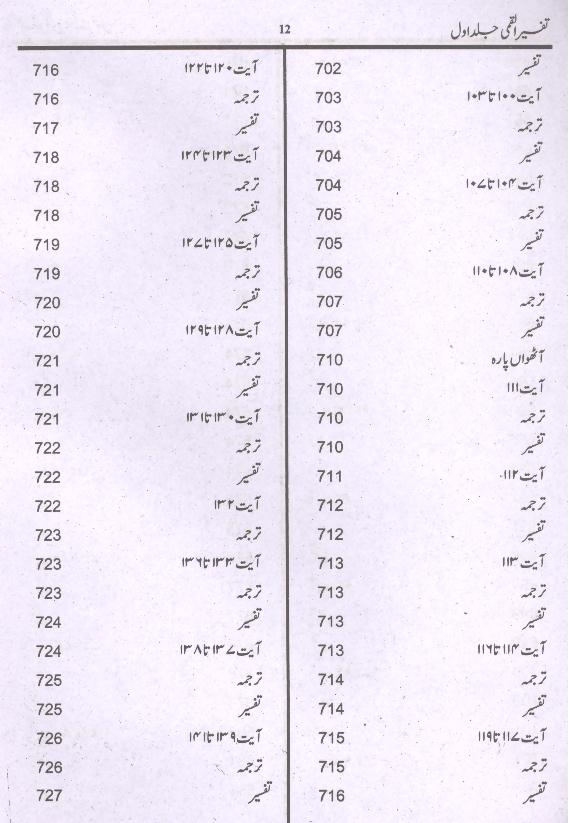 تفسیر القمی جلد اول 12
تفسیر 702
آیت ۱۰۰ تا ۱۰۳ 703
ترجمہ 703
تفسیر 704
آیت ۱۰۴ تا ۱۰۷ 704
ترجمہ 705
تفسیر 705
آیت ۱۰۸ تا ۱۱۰ 706
ترجمہ 707
تفسیر 707
آٹھواں پارہ 710
آیت ۱۱۱ 710
ترجمہ 710
تفسیر 710
آیت ۱۱۲ 711
ترجمہ 712
تفسیر 712
آیت ۱۱۳ 713
ترجمہ 713
تفسیر 713
آیت ۱۱۴ تا ۱۱۶ 713
ترجمہ 714
تفسیر 714
آیت ۱۱۷ تا ۱۱۹ 715
ترجمہ 715
تفسیر 716
آیت ۱۲۰ تا ۱۲۲ 716
ترجمہ 716
تفسیر 717
آیت ۱۲۳ تا ۱۲۴ 718
ترجمہ 718
تفسیر 718
آیت ۱۲۵ تا ۱۲۷ 719
ترجمہ 719
تفسیر 720
آیت ۱۲۸ تا ۱۲۹ 720
ترجمہ 721
تفسیر 721
آیت ۱۳۰ تا ۱۳۱ 721
ترجمہ 722
تفسیر 722
آیت ۱۳۲ 722
ترجمہ 723
آیت ۱۳۳ تا ۱۳۶ 723
ترجمہ 723
تفسیر 724
آیت ۱۳۷ تا ۱۳۸ 724
ترجمہ 725
تفسیر 725
آیت ۱۳۹ تا ۱۴۱ 726
ترجمہ 726
تفسیر 727